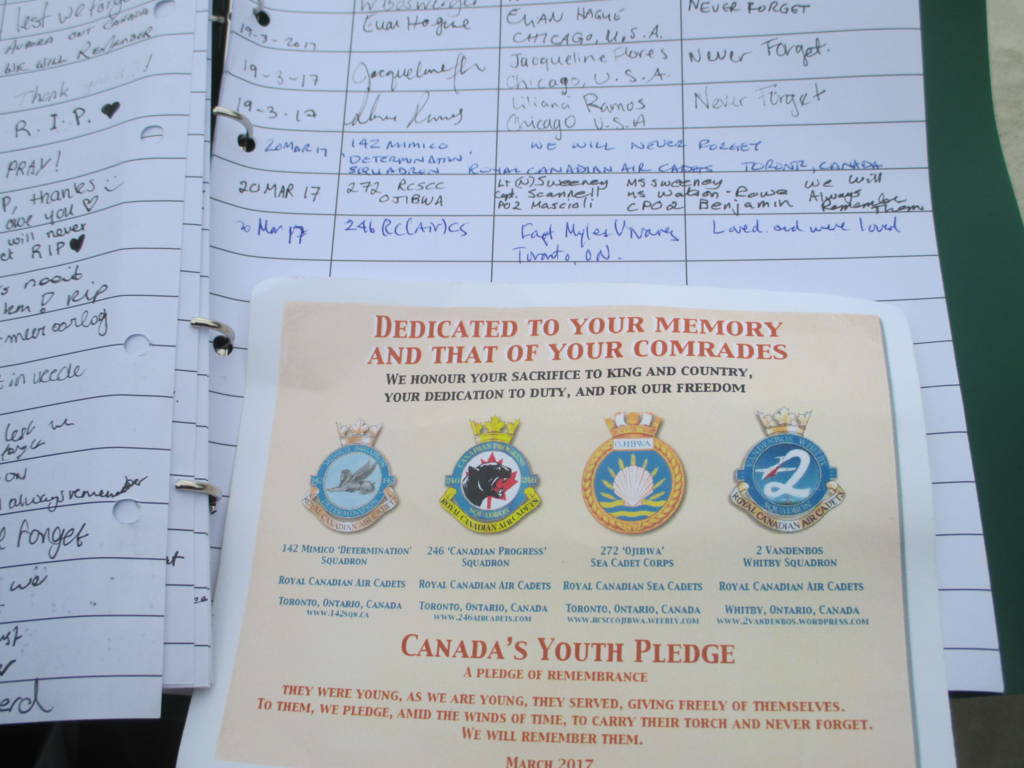 lest we forget
AURORA ONT CANADA
WE WILL REMEMBER
Thank !
R. I. P. ♥
PRAY!
P, thanks
love you ♡
will never
et RIP ♥
kem? RIP
meer oorlog
in vrede
lest we
ON
always remember
forget
we
NEVER FORGET
19-3-2017 Euan Hague EUAN HAGUE
CHICAGO, U.S.A.
19-3-17 Jacqueline Flores Never Forget.
Chicago, U.S.A.
19-3-17 Liliana Ramos Never Forget
Chicago U.S.A
20 MAR 17 142 MIMICO WE WILL NEVER FORGET
'DETERMINATION'
SQUADRON ROYAL CANADIAN AIR CADETS TORONTO, CANADA
20 MAR 17 272 RCSCC Lt(N) Sweeney MS Sweeney We Will
OJIBWA Cpt. Scannell Ms Watson-Rowe Always
PO2 Mascioli CPO2 Benjamin Remember Them
20 Mar 17 246 RC(Air)CS Capt Myles Loved and were loved
Toronto, ON.
DEDICATED TO YOUR MEMORY
AND THAT OF YOUR COMRADES
WE HONOUR YOUR SACRIFICE TO KING AND COUNTRY,
YOUR DEDICATION TO DUTY, AND FOR OUR FREEDOM
ROYAL CANADIAN AIR CADETS
CANADIAN PROGRESS
246 246
SQUADRON
ROYAL CANADIAN AIR CADETS
OJIBWA
VANDENBOS WHITBY
2
SQUADRON
ROYAL CANADIAN AIR CADETS
142 MIMICO 'DETERMINATION' 246 'CANADIAN PROGRESS' 272 'OJIBWA' 2 VANDENBOS
SQUADRON SQUADRON SEA CADET CORPS WHITBY SQUADRON
ROYAL CANADIAN AIR CADETS ROYAL CANADIAN AIR CADETS ROYAL CANADIAN SEA CADETS ROYAL CANADIAN AIR CADETS
TORONTO, ONTARIO, CANADA TORONTO, ONTARIO, CANADA TORONTO, ONTARIO, CANADA WHITBY, ONTARIO, CANADA
WWW.142SQN.CA WWW.246AIRCADETS.COM WWW.RCSCCOJIBWA.WEEBLY.COM WWW.2VANDENBOS.WORDPRESS.COM
CANADA'S YOUTH PLEDGE
A PLEDGE OF REMEMBRANCE
THEY WERE YOUNG, AS WE ARE YOUNG, THEY SERVED, GIVING FREELY OF THEMSELVES.
TO THEM, WE PLEDGE, AMID THE WINDS OF TIME, TO CARRY THEIR TORCH AND NEVER FORGET.
WE WILL REMEMBER THEM.
MARCH 2017